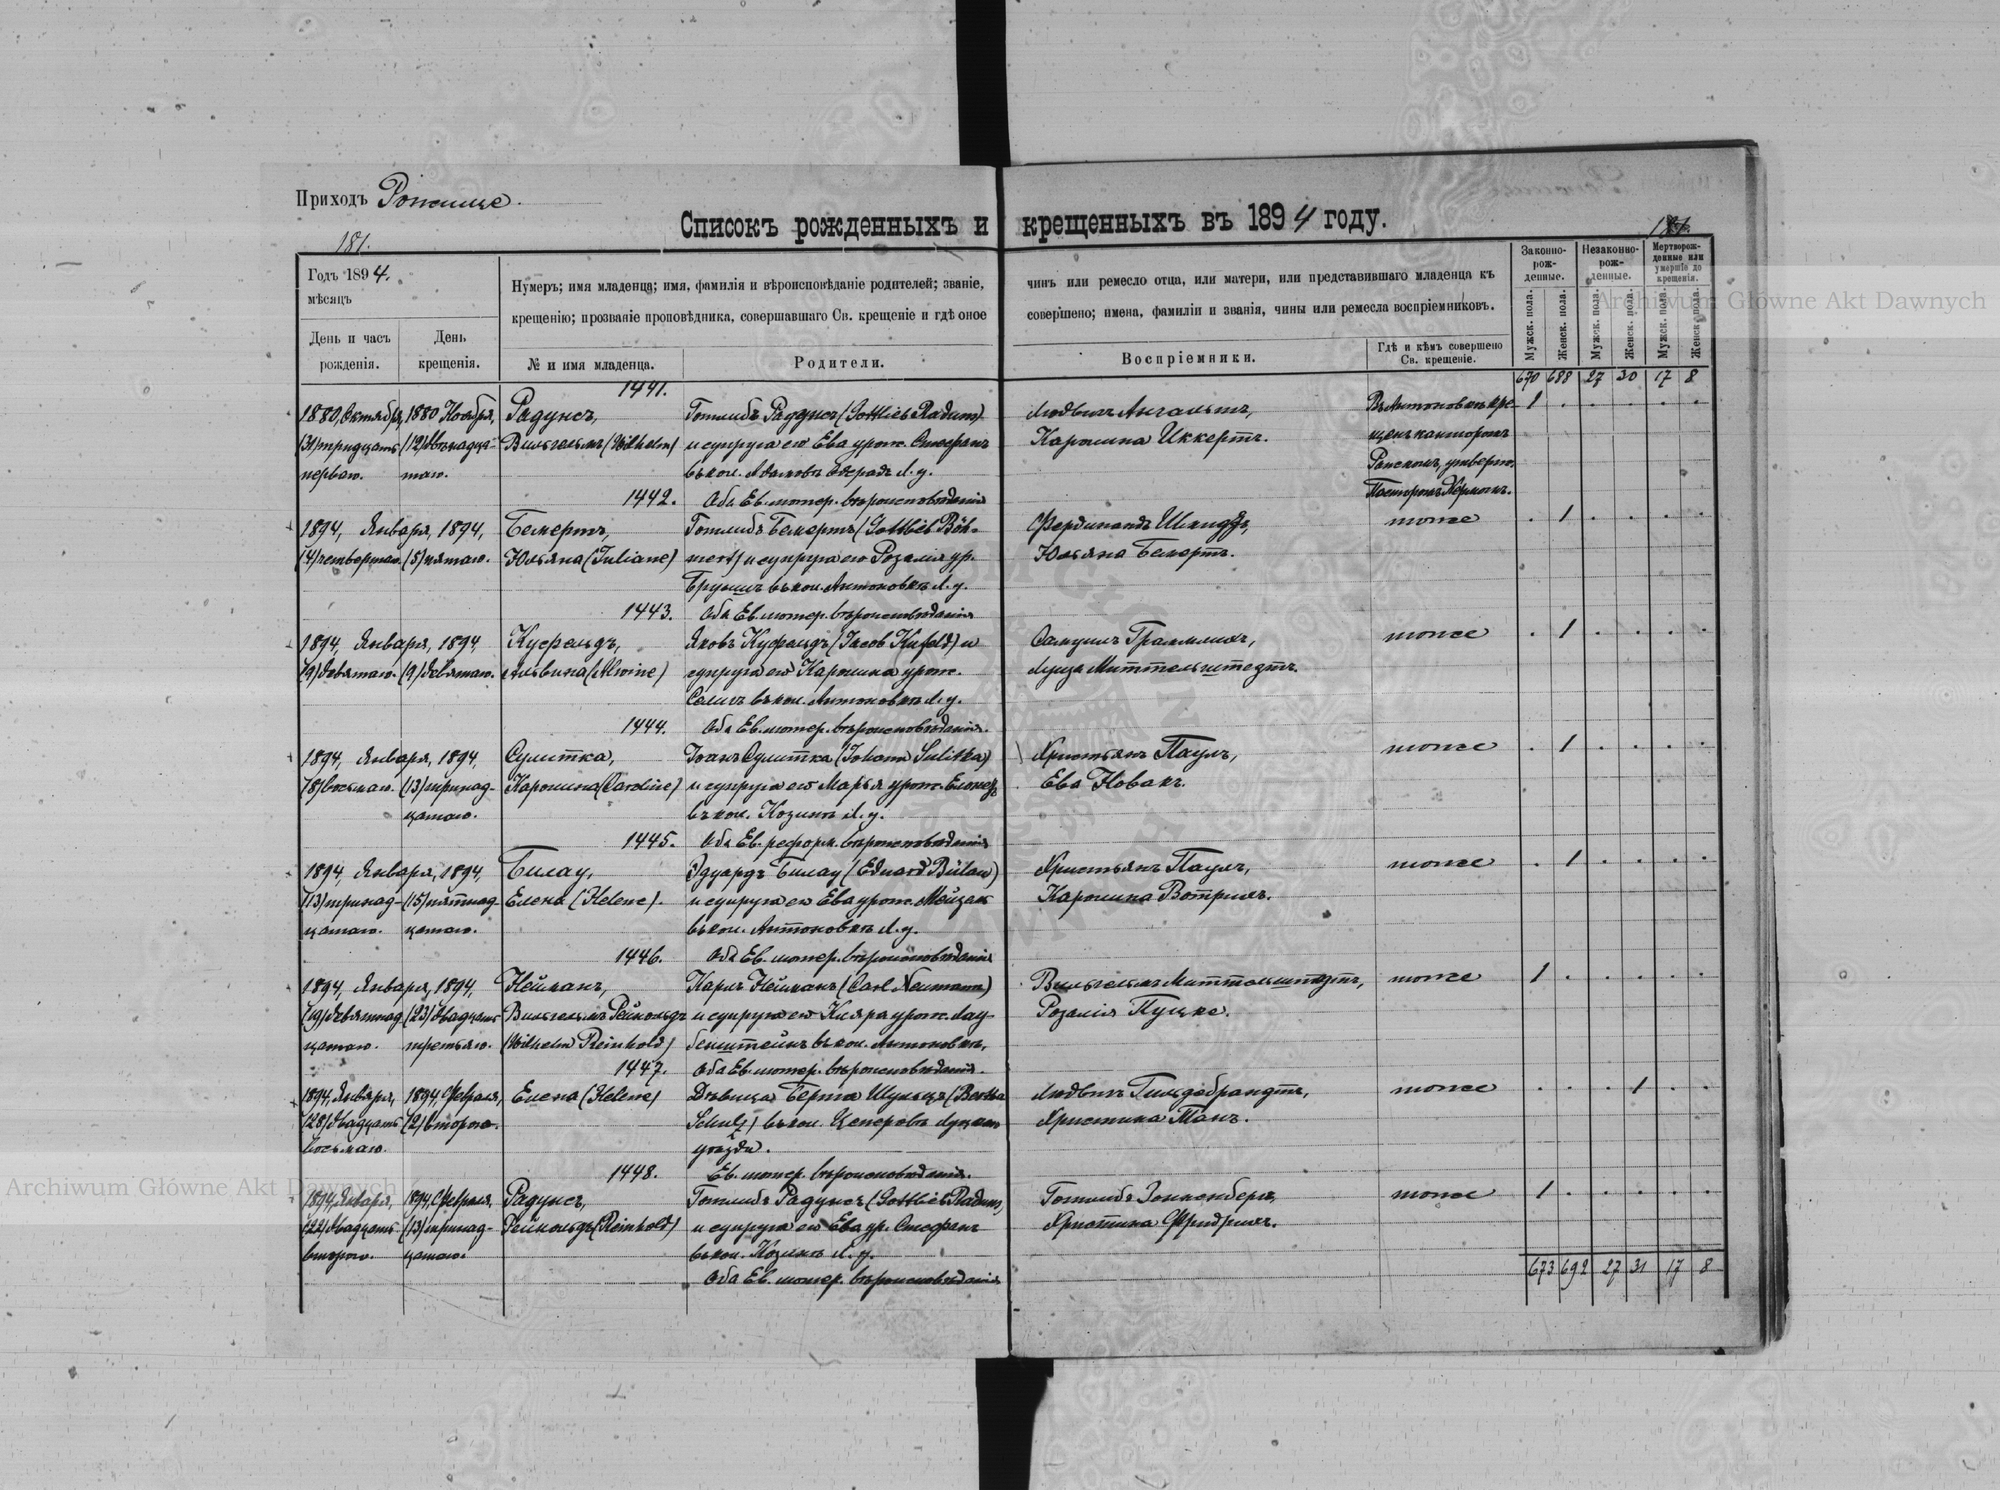 Приходъ Рожище.
Списокъ рожденныхъ и крещенныхъ въ 1894 году.
181.
181.
Годъ 1894.
мѣсяцъ
День и часъ рожденія.
День крещенія.
Нумеръ; имя младенца; имя, фамилія и вѣроисповѣданіе родителей; званіе, чинъ или ремесло отца, или матери, или представившаго младенца къ
крещенію; прозваніе проповѣдника, совершавшаго Св. крещеніе и гдѣ оное совершено; имена, фамиліи и званія, чины или ремесла воспріемниковъ.
№ и имя младенца.
Родители.
Воспріемники.
Гдѣ и кѣмъ совершено Св. крещеніе.
Законно-рож-денные.
Незаконно-рож-денные.
Мертворож-денные или умершіе до крещенія.
Мужск. пола. Женск. пола. Мужск. пола. Женск. пола. Мужск. пола. Женск. пола.
670 688 27 30 17 8
1441.
1880, Октября, 1880 Ноября, Радунсъ, Готлибъ Радунсъ (Gottlieb Radunz) Людвигъ Ангальтъ, Въ Антоновкѣ кре- 1 . . . . .
(31) тридцать (12) двѣнадца- Вильгельмъ (Wilhelm) и супруга его Ева урож. Стефанъ Каролина Иккертъ. щенъ канторомъ
перваго. таго. въ кол. Адамовъ
1442. Оба Ев. лютер. вѣроисповѣданія Пасторомъ
1894, Января, 1894, Бемертъ, Готлибъ Бемертъ (Gottlieb Böh- Фердинандъ Шмидтъ, тоже . 1 . . . .
(4) четвертаго. (5) пятаго. Юльяна (Juliane) mert) и супруга его Розалія ур. Юльяна Бемертъ.
въ кол. Антоновкѣ Л. у.
1443. Оба Ев. лютер. вѣроисповѣданія
1894, Января, 1894, Куфельдъ, Яковъ Куфельдъ (Jacob Kufeld) и Самуилъ Граммлихъ, тоже . 1 . . . .
(9) девятаго. (9) девятаго. Альвина (Alwine) супруга его Каролина урож. Луиза Миттельштедтъ.
въ кол. Антоновкѣ Л. у.
1444. Оба Ев. лютер. вѣроисповѣданія.
1894, Января, 1894, Сулитка, Іоганъ Сулитка (Johann Sulitka) Христьянъ Паулъ, тоже . 1 . . . .
(8) восьмаго. (13) тринад- Каролина (Caroline) и супруга его Марья урож. Ева Новакъ.
цатаго. въ кол. Козинъ Л. у.
1445. Оба Ев. реформ. вѣроисповѣданія
1894, Января, 1894, Билау, Эдуардъ Билау (Eduard Bülow) Христьянъ Паулъ, тоже . 1 . . . .
(13) тринад- (15) пятнад- Елена (Helene). и супруга его Ева урож. Каролина
цатаго. цатаго. въ кол. Антоновкѣ Л. у.
1446. Оба Ев. лютер. вѣроисповѣданія
1894, Января, 1894, Нейманъ, Карлъ Нейманъ (Carl Neumann) Вильгельмъ Миттельштедтъ, тоже 1 . . . . .
(19) девятнад- (23) двадцать Вильгельмъ Рейнольдъ и супруга его Клара урож. Лау- Розалія Пуцке.
цатаго. третьяго. (Wilhelm Reinhold) бенштейнъ въ кол. Антоновкѣ,
1447. Оба Ев. лютер. вѣроисповѣданія.
1894, Января, 1894, Февраля, Елена (Helene) Дѣвица Берта Шульцъ (Bertha Людвигъ Гильдебрандтъ, тоже . . . 1 . .
(28) двадцать (2) втораго. Schulz) въ кол. Цеперовъ Луцкомъ Христина Манъ.
восьмаго. уѣздѣ.
1448. Ев. лютер. вѣроисповѣданія.
1894, Января, 1894, Февраля, Радунсъ, Готлибъ Радунсъ (Gottlieb Radunz) Готлибъ Зонненбергъ, тоже 1 . . . . .
(22) двадцать (13) тринад- Рейнольдъ (Reinhold) и супруга его Ева ур. Стефанъ Христина Фридрихъ.
втораго. цатаго. въ кол. Козинъ Л. у.
Оба Ев. лютер. вѣроисповѣданія
673 692 27 31 17 8
Archiwum Główne Akt Dawnych
Archiwum Główne Akt Dawnych